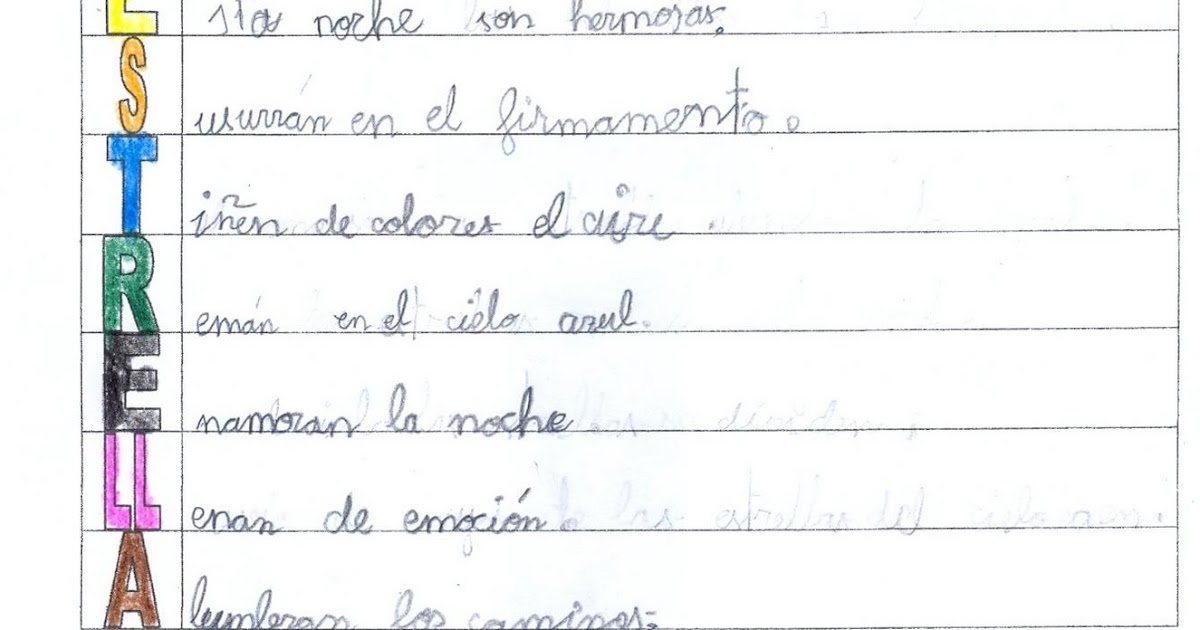 E sta noche son hermosas.
S usurrán en el firmamento.
T iñen de colores el aire.
R emán en el cielo azul.
E namoran la noche
LL enan de emoción.
A lumbran los caminos.